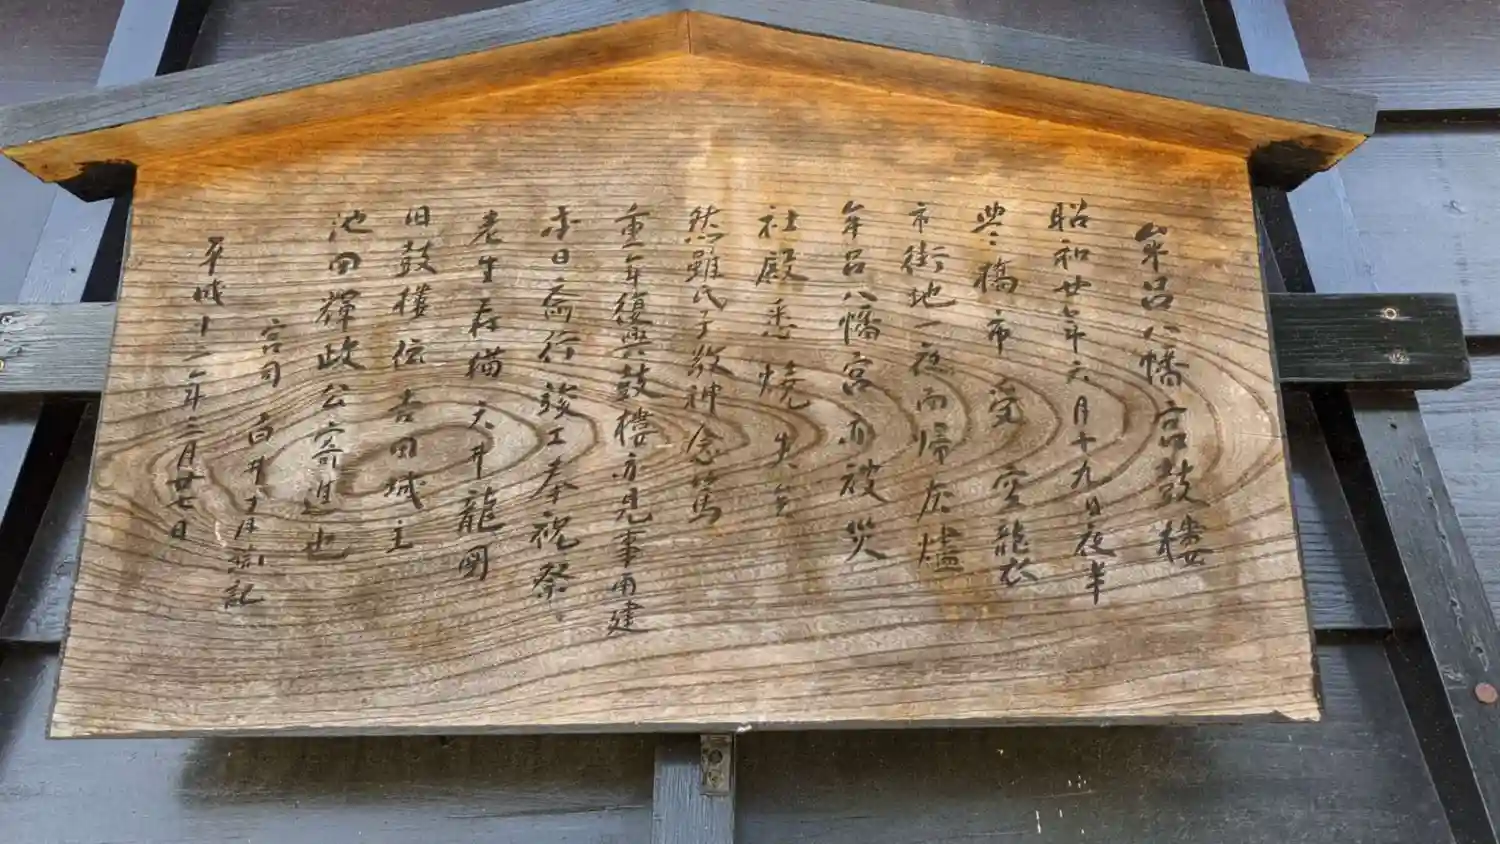 牟呂八幡宮鼓樓
昭和廿年六月十九日夜半
豊橋市受空襲衣
市街地一夜而帰灰燼
牟呂八幡宮亦被災
社殿悉焼失矣
然雖氏子敬神念篤
重年復興鼓樓亦見事再建
本日斎行竣工奉祝祭
老生存猫天井龍図
旧鼓樓伝吉田城主
池田輝政公寄進也
宮司 白井 記
平成十二年三月廿七日